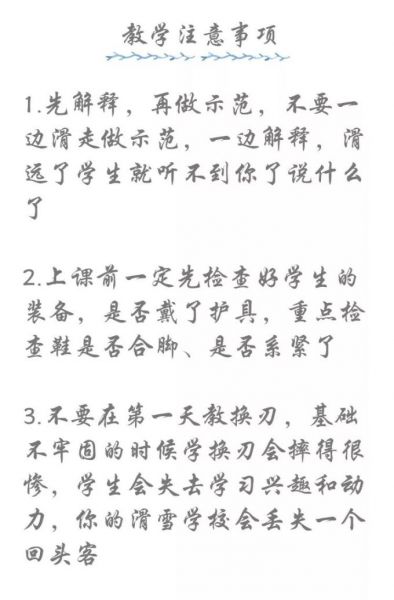 教学注意事项
1.先解释，再做示范，不要一
边滑走做示范，一边解释，滑
远了学生就听不到你了说什么
了
2.上课前一定先检查好学生的
装备，是否戴了护具，重点检
查鞋是否合脚、是否系紧了
3.不要在第一天教换刃，基础
不牢固的时候学换刃会摔得很
惨，学生会失去学习兴趣和动
力，你的滑雪学校会丢失一个
回头客